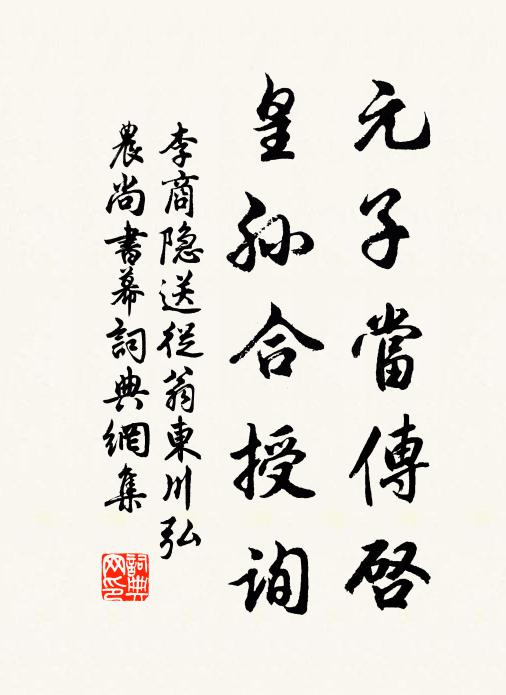 元子當傳啓
皇孙合授询
李商隐送從翁東川弘
農尚書幕詞典網集
詞典网印